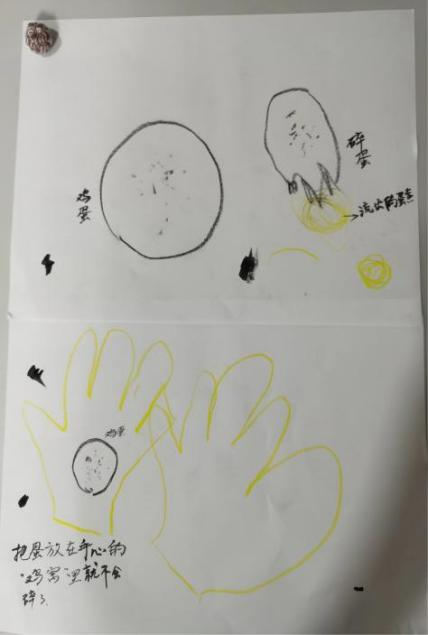 鸡蛋
碎蛋
→流出的蛋黄
鸡蛋
把蛋放在手心的
“鸡窝”里就不会
碎了